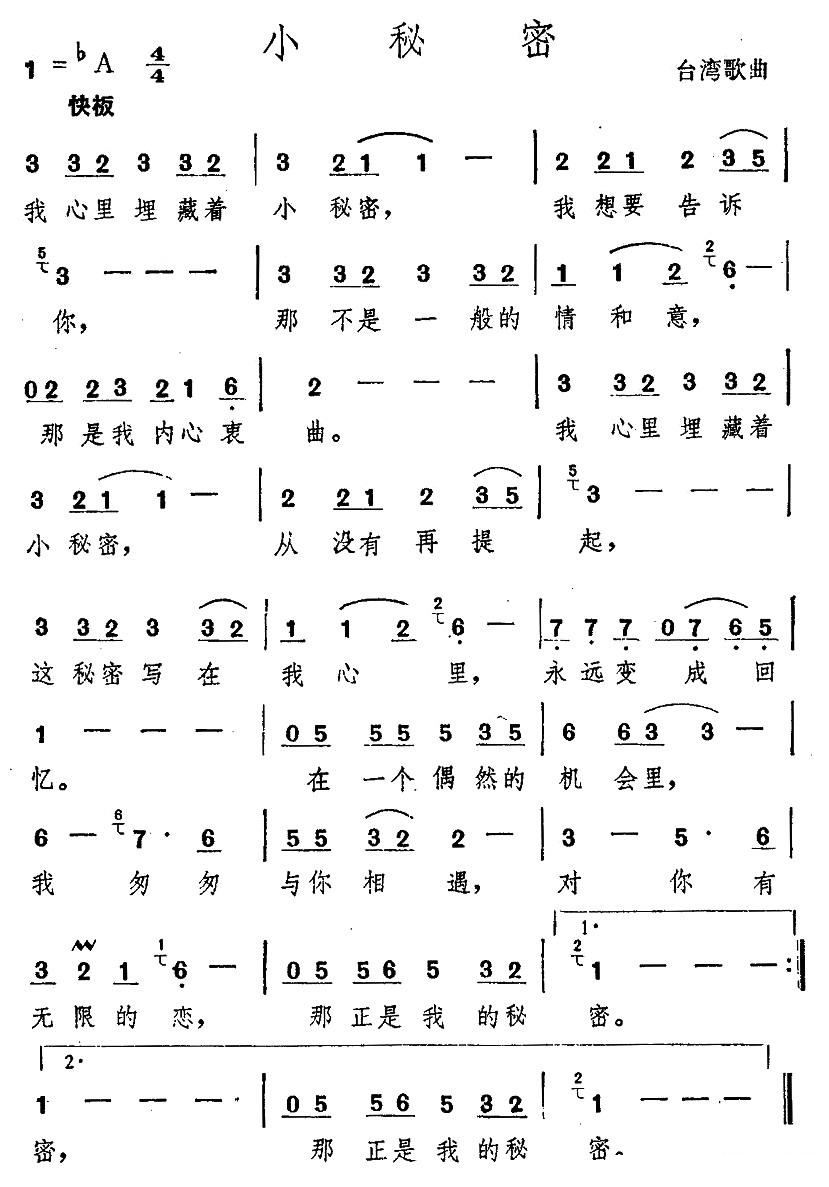 小秘密
1=♭A 4/4
台湾歌曲
快板
3 32 3 32 | 3 21 1 — | 2 21 2 35 |
我心里埋藏着 小秘密, 我想要告诉
5 3 — — — | 3 32 3 32 | 1 1 2 2 6 — |
你, 那不是一般的 情和意,
02 23 21 6 | 2 — — — | 3 32 3 32 |
那是我内心衷 曲。 我心里埋藏着
3 21 1 — | 2 21 2 35 | 5 3 — — — |
小秘密, 从没有再提 起,
3 32 3 32 | 1 1 2 2 6 — | 7 7 7 07 6 5 |
这秘密写在 我心里, 永远变成回
1 — — — | 05 55 5 35 | 6 63 3 — |
忆。 在一个偶然的 机会里,
6 — 6 7· 6 | 55 32 2 — | 3 — 5· 6 |
我匆匆 与你相遇, 对你有
3 2 1 1 6 — | 05 56 5 32 | 1· 2 1 — — — :|
无限的恋, 那正是我的秘 密。
2·
1 — — — | 05 56 5 32 | 2 1 — — — ||
密, 那正是我的秘 密。